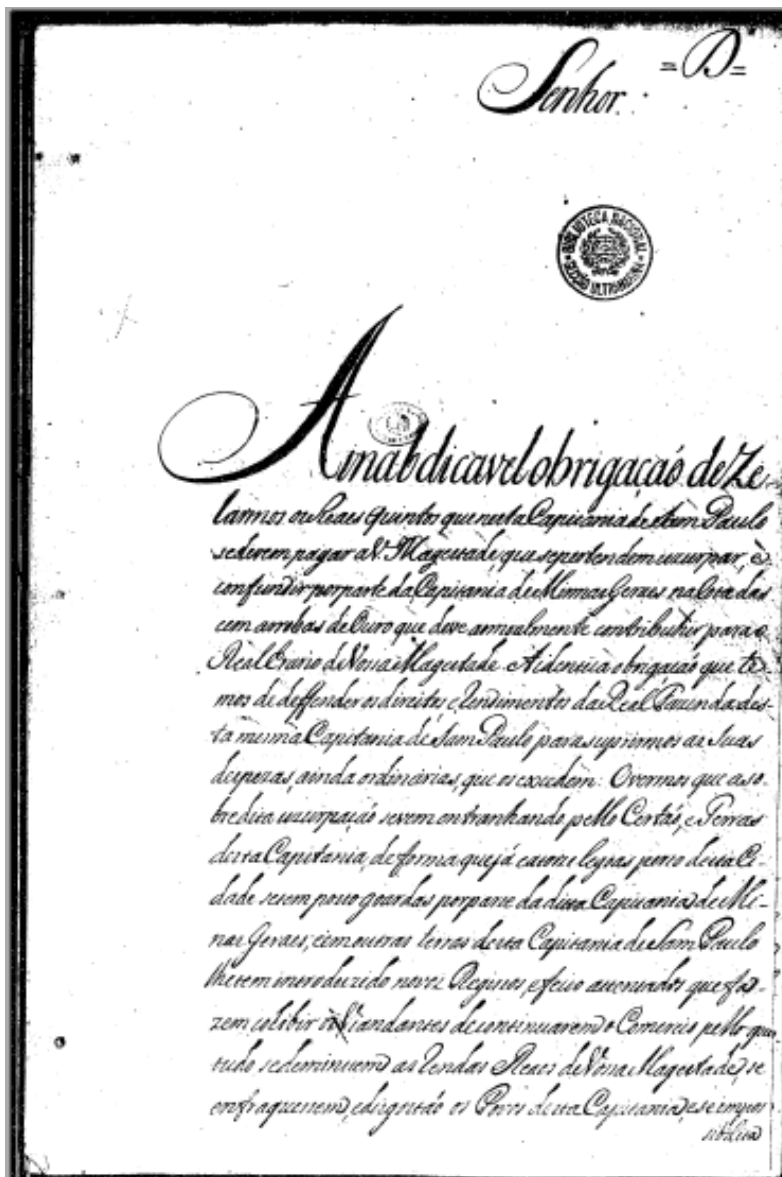 =D=
Senhor.
BIBLIOTECA NACIONAL
SECÇÃO ULTRAMARINA
A inabdicavel obrigaçaõ de Ze-
larmos os Reaes Quintos que nesta Capitania de Sam Paulo
se devem pagar a V. Magestade, que se pertendem uzurpar, e
confundir por parte da Capitania de Minnas Geraes na Cota das
cem arrobas de Ouro que deve annualmente contribuhir para o
Real Erario de Vossa Magestade A identica obrigaçaõ que te-
mos de deffender os direitos e Rendimentos da Real Fazenda des-
ta mesma Capitania de Sam Paulo para suprirmos as Suas
despezas, ainda ordinarias, que os excedem: O vermos que a so-
bredita uzurpaçaõ se vem entranhando pello Certaõ, e Terras
desta Capitania, de forma que já catorze legoas perto desta Ci-
dade se tem posto goardas por parte da ditta Capitania de Mi-
nas Geraes, e em outras terras desta Capitania de Sam Paulo
lhe tem introduzido novos Registos, e feito attentados que fa-
zem cohibir os Viandantes de continuarem o Comercio pello que
tudo se deminuem as Rendas Reaes de Vossa Magestade, se
enfraquessem, e disgostaõ os Povos desta Capitania, e se impos
sibilita